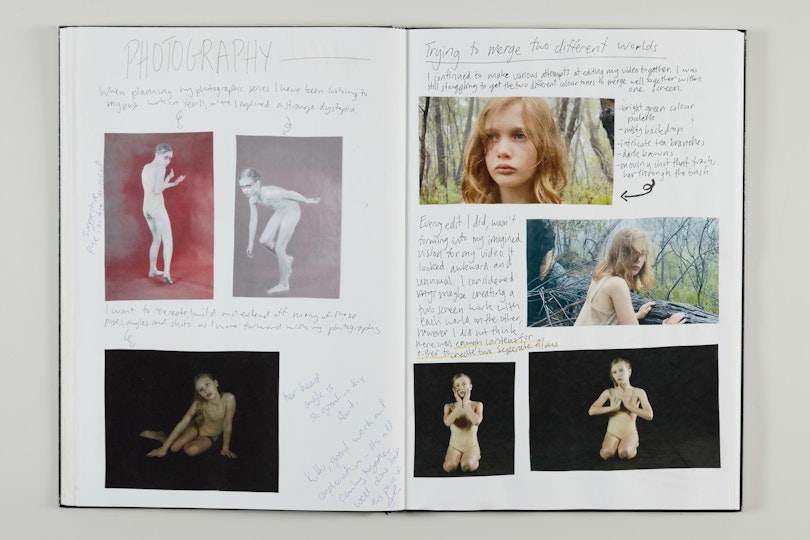 PHOTOGRAPHY
When planning my photographic series I have been looking to
my past works in Year 11, where I explored a strange dystopia.
I want to recreate, build and extend off many of these
poses, angles and shots as I move forward with my photography
her head
angle is
so good in this
shot
good work and
exploration - it's all
coming together
well done
Trying to merge two different worlds
I continued to make various attempts at editing my video together. I was
still struggling to get the two different colour tones to merge well together within
one screen.
-bright green colour
palette
-misty backdrop
-intricate tea branches
-dark browns
-moving shot that tracks
her through the bush
Every edit I did, wasn't
forming into my imagined
vision for my video. It
looked awkward and
unusual. I considered
maybe creating a
two screen work with
each world on the other,
however I did not think
there was enough content for
either to create two seperate films